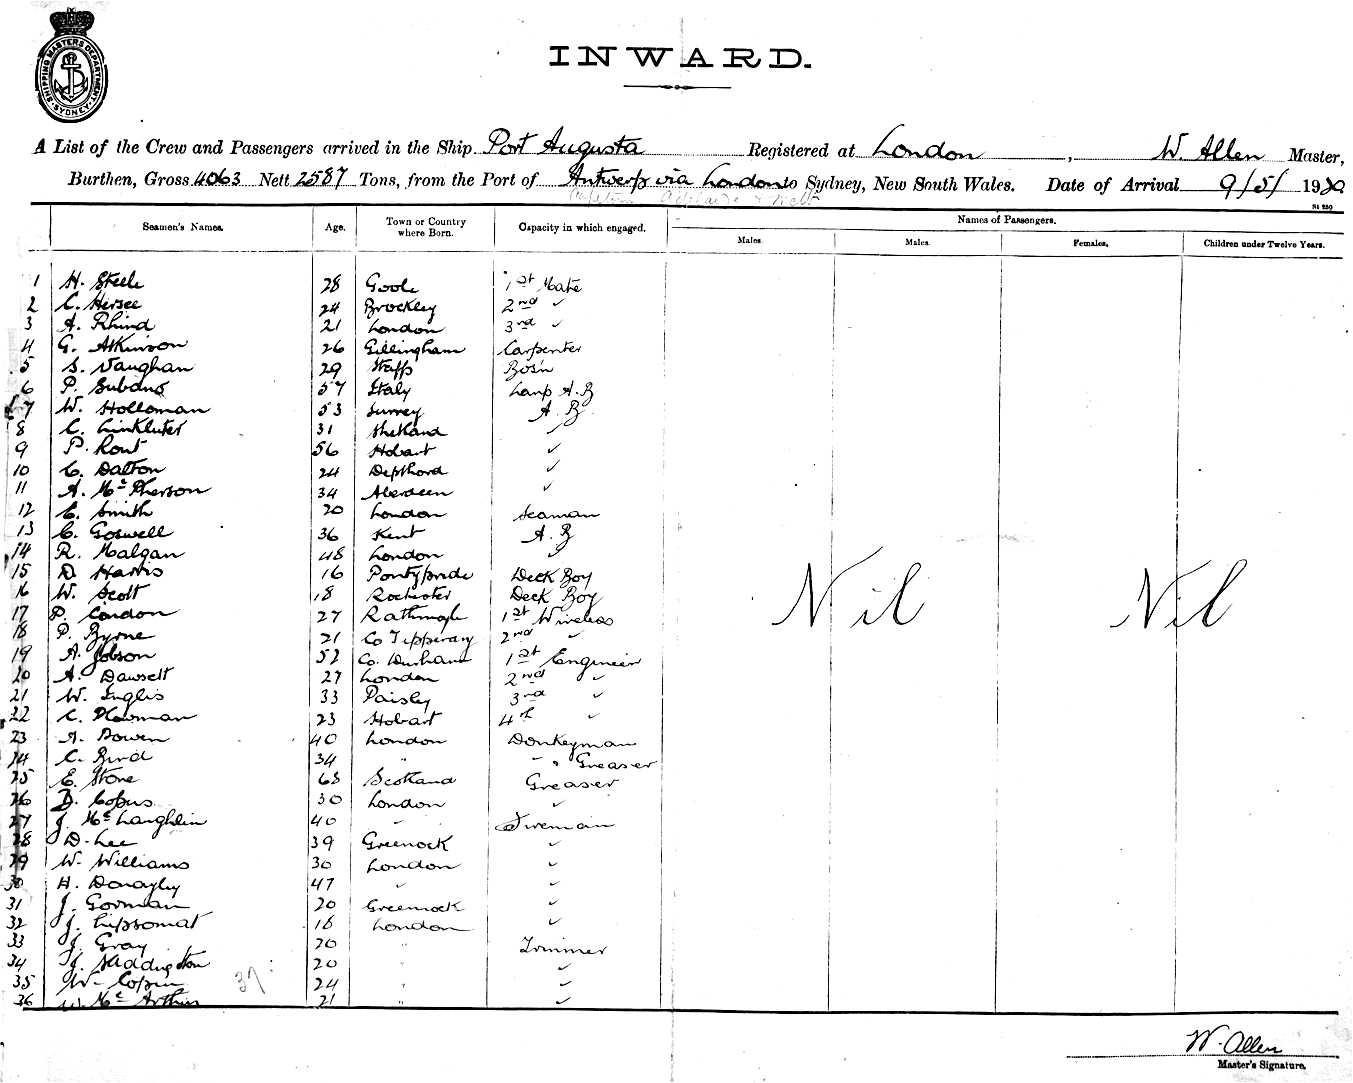 SHIPPING MASTERS DEPARTMENT SYDNEY
INWARD.
A List of the Crew and Passengers arrived in the Ship Port Augusta Registered at London, W. Allen Master,
Burthen, Gross 4063 Nett 2587 Tons, from the Port of Antwerp via London to Sydney, New South Wales. Date of Arrival 9/5/ 1920
Adelaide & Melb
Seamen's Names. Age. Town or Country where Born. Capacity in which engaged. Names of Passengers.
Males. Males. Females. Children under Twelve Years.
1 H. Steele 28 Goole 1st Mate
2 C. Hersee 24 Brockley 2nd ✓
3 A. Rhind 21 London 3rd ✓
4 G. Atkinson 26 Gillingham Carpenter
5 S. Vaughan 29 Staffs Bos'n
6 P. Subano 57 Italy Lamp A.B
7 W. Holloman 53 Surrey A.B
8 C. Linkluter 31 Shetland ✓
9 P. Rout 56 Hobart ✓
10 C. Dalton 24 Depthord ✓
11 A. McPherson 34 Aberdeen ✓
12 E. Smith 20 London Seaman
13 C. Goswell 36 Kent A.B
14 R. Malgan 48 London ✓
15 D Harris 16 Pontypride Deck Boy
16 W. Scott 18 Rochester Deck Boy
17 P. Condon 27 1st Wireless
18 P. Byrne 21 Co Tipperary 2nd ✓
19 A. Jobson 52 Co. Durham 1st Engineer
20 A. Dawsett 27 London 2nd ✓
21 W. Inglis 33 Paisley 3rd ✓
22 C. Plowman 23 Hobart 4th ✓
23 A. Bowen 40 London Donkeyman
24 C. Bird 34 " " " Greaser
25 E. Stone 68 Scotland Greaser
26 D. Copus 30 London ✓
27 J. McLaughlin 40 " Fireman
28 D. Lee 39 Greenock ✓
29 W. Williams 30 London ✓
30 H. Donagley 47 " ✓
31 J. Gorman 20 Greenock ✓
32 J. Lipsomat 18 London ✓
33 J. Gray 20 " Trimmer
34 J. Saddington 20 " ✓
35 W. Copin 24 " ✓
36 W. McArthur 21 " ✓
37
Nil Nil
W. Allen
Master's Signature.